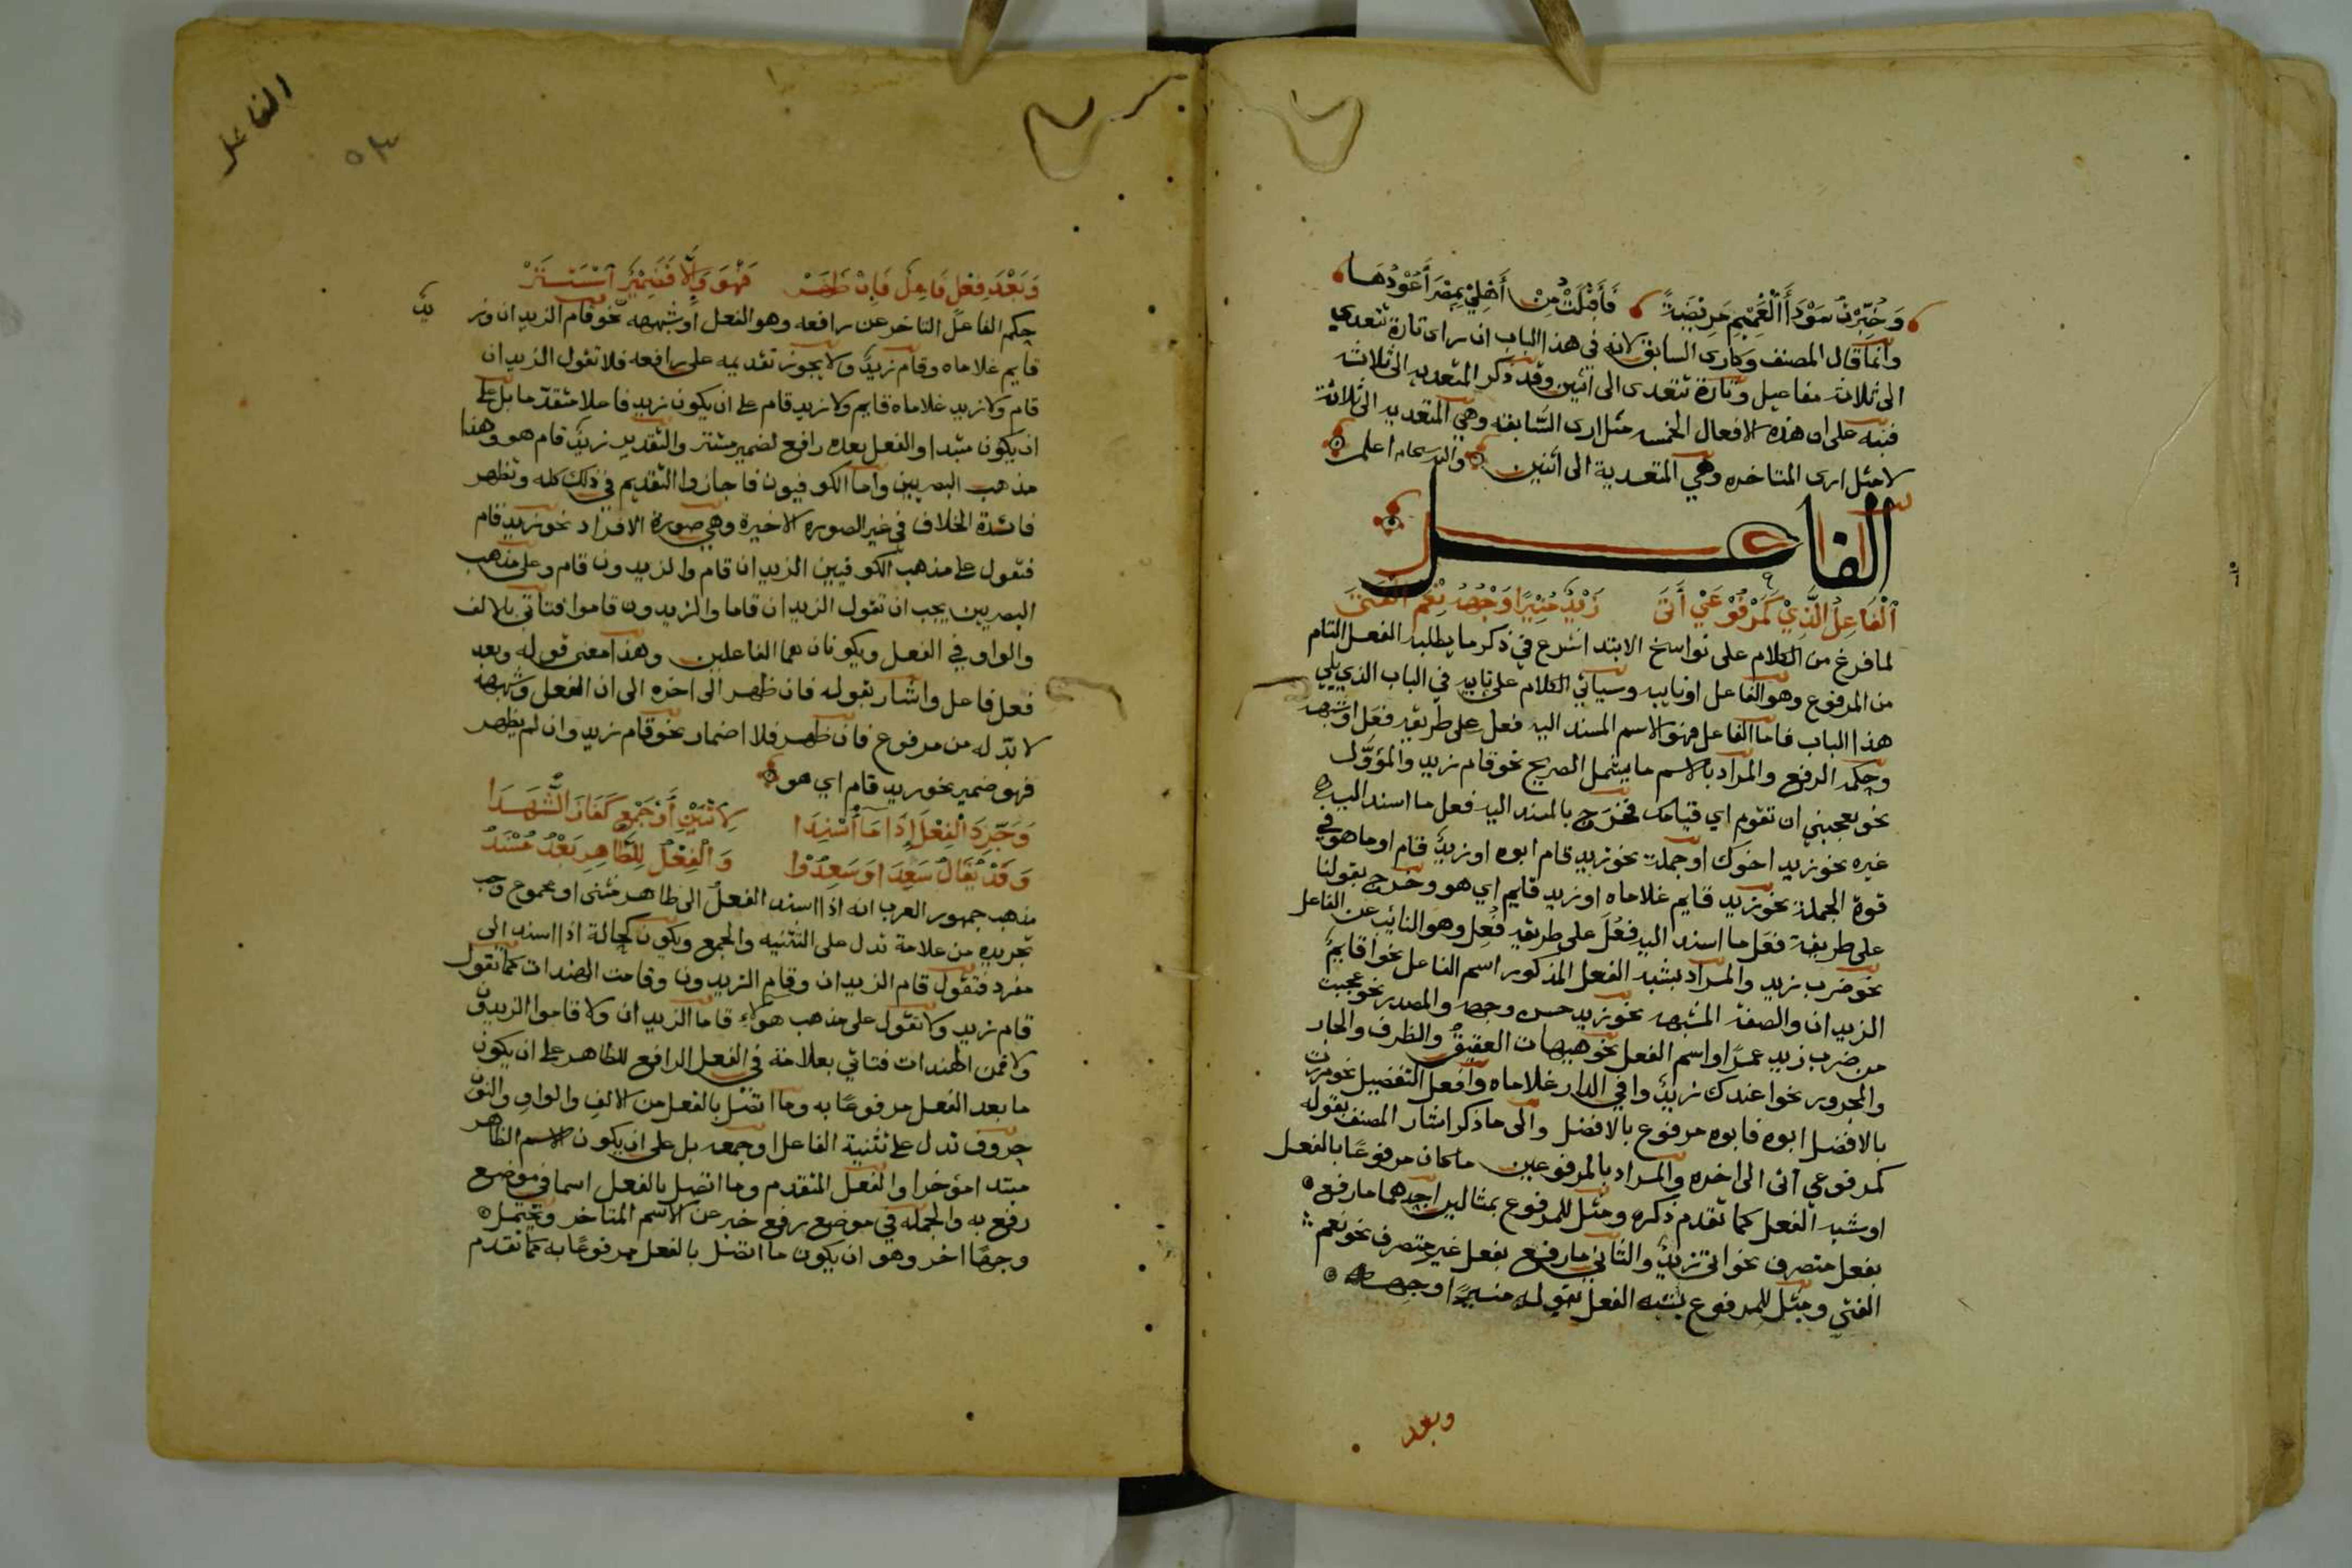 وَخُبِّرْتُ سَوْدَأَ الْغَمِيْمِ مَرِيْضَةً فَأَقْبَلْتُ مِنْ أَهْلِيْ بِمِصْرَ أَعُوْدُهَا
وانما قال المصنف وكارى السابق لانه في هذا الباب ان رأى تارة تتعدي
الى ثلاث مفاعيل وتارة تتعدى الى اثنين وقد ذكر المتعديه الى ثلاثه
فنبه على ان هذه الافعال الخمسه مثل ارى السَّابقه وهي المتعديه الى ثلاثة
لا مثل ارى المتاخره وهي المتعدية الى اثنين والله سبحانه اعلم
الفاعل
اَلْفَاعِلُ الَّذِيْ كَمَرْفُوْعَيْ أَتَى زَيْدٌ مُنِيْرًا وَجْهُهُ نِعْمَ الْفَتَى
لما فرغ من الكلام على نواسخ الابتدا شرع في ذكر ما يطلبه الفعل التام
من المرفوع وهو الفاعل او نايبه وسيأتي الكلام على نايبه في الباب الذي يلي
هذا الباب فاما الفاعل فهو الاسم المسند اليه فعل على طريقه فعَل او شبهه
وحكمه الرفع والمراد بالاسم ما يشمل الصريح نحو قام زيد والمؤوّل
نحو يعجبني ان تقوم اي قيامك فخرج بالمسند اليه فعل ما اسند اليه
غيره نحو زيد اخوك او جملة نحو زيد قام ابوه او زيدٌ قام او ما هو في
قوة الجملة نحو زيد قايم غلاماه او زيد قايم اي هو وخرج بقولنا
على طريقة فعَل ما اسند اليه فِعْلٌ على طريقه فُعِل وهو النائب عن الفاعل
نحو ضرب زيد والمراد بشبه الفعل المذكور اسم الفاعل نحو اقايمٌ
الزيدان والصفة المشبهه نحو زيد حسن وجهه والمصدر نحو عجبت
من ضرب زيد عمرًا واسم الفعل نحو هيهات العقيقُ والظرف والجار
والمجرور نحو اعندك زيدٌ وافي الدار غلاماه وافعل التفضيل نحو مررت
بالافضل ابوه فابوه مرفوع بالافضل والى ما ذكر اشار المصنف بقوله
كمرفوعي أتى الى اخره والمراد بالمرفوعين ما كان مرفوعًا بالفعل
او شبه الفعل كما تقدم ذكره ومثل للمرفوع بمثالين احدهما ما رفع
بفعل متصرف نحو اتى زيدٌ والثاني ما رفع بفعل غير متصرف نحو نعم
الفتى ومثل للمرفوع بشبه الفعل بقوله منيرًا وجهه
وبعد
الفاعل
٥٤
وَبَعْدَ فِعْلٍ فَاعِلٌ فَإِنْ ظَهَرْ فَهْوَ وَإِلَّا فَضَمِيْرٌ اسْتَتَرْ
حكم الفاعل التاخر عن رافعه وهو الفعل او شبهه نحو قام الزيدان وز
يد
قايم غلاماه وقام زيدٌ ولا يجوز تقديمه على رافعه فلا تقول الزيدان
قام ولا زيد غلاماه قايم ولا زيد قام على ان يكون زيد فاعلا متقدما بل على
ان يكون مبتدا والفعل بعده رافع لضمير مستتر والتقدير زيدٌ قام هو وهذا
مذهب البصريين واما الكوفيون فاجازوا التقديم في ذلك كله وتظهر
فائدة الخلاف في غير الصوره الاخيرة وهي صورة الافراد نحو زيد قام
فتقول على مذهب الكوفيين الزيدان قام والزيدون قام وعلى مذهب
البصريين يجب ان تقول الزيدان قاما والزيدون قاموا فتاتي بالالف
والواو في الفعل ويكونان هما الفاعلين وهذا معنى قوله وبعد
فعل فاعل واشار بقوله فان ظهر الى اخره الى ان الفعل وشبهه
لا بدّ له من مرفوع فان ظهر فلا اضمار نحو قام زيد وان لم يظهر
فهو ضمير نحو زيد قام اي هو
وَجَرِّدِ الْفِعْلَ إِذَا مَا أُسْنِدَا لِاثْنَيْنِ أَوْ جَمْعٍ كَفَازَ الشُّهَدَا
وَقَدْ يُقَالُ سَعِدَا وَسَعِدُوْا وَالْفِعْلُ لِلظَّاهِرِ بَعْدُ مُسْنَدُ
مذهب جمهور العرب انه اذا اسند الفعل الى ظاهر مثنى او مجموع وجب
تجريده من علامة تدل على التثنيه والجمع ويكون كحالة اذا اسند الى
مفرد فتقول قام الزيدان وقام الزيدون وقامت الهندات كما تقول
قام زيد ولا تقول على مذهب هولاء قاما الزيدان ولا قاموا الزيدون
ولا قمن الهندات فتاتي بعلامة في الفعل الرافع للظاهر على ان يكون
ما بعد الفعل مرفوعًا به وما اتصل بالفعل من الالف والواو والنون
حروف تدل على تثنية الفاعل او جمعه بل على ان يكون الاسم الظاهر
مبتدا مؤخرا والفعل المتقدم وما اتصل بالفعل اسما في موضع
رفع به والجمله في موضع رفع خبر عن الاسم المتاخر ويحتمل
وجهًا اخر وهو ان يكون ما اتصل بالفعل مرفوعًا به كما تقدم